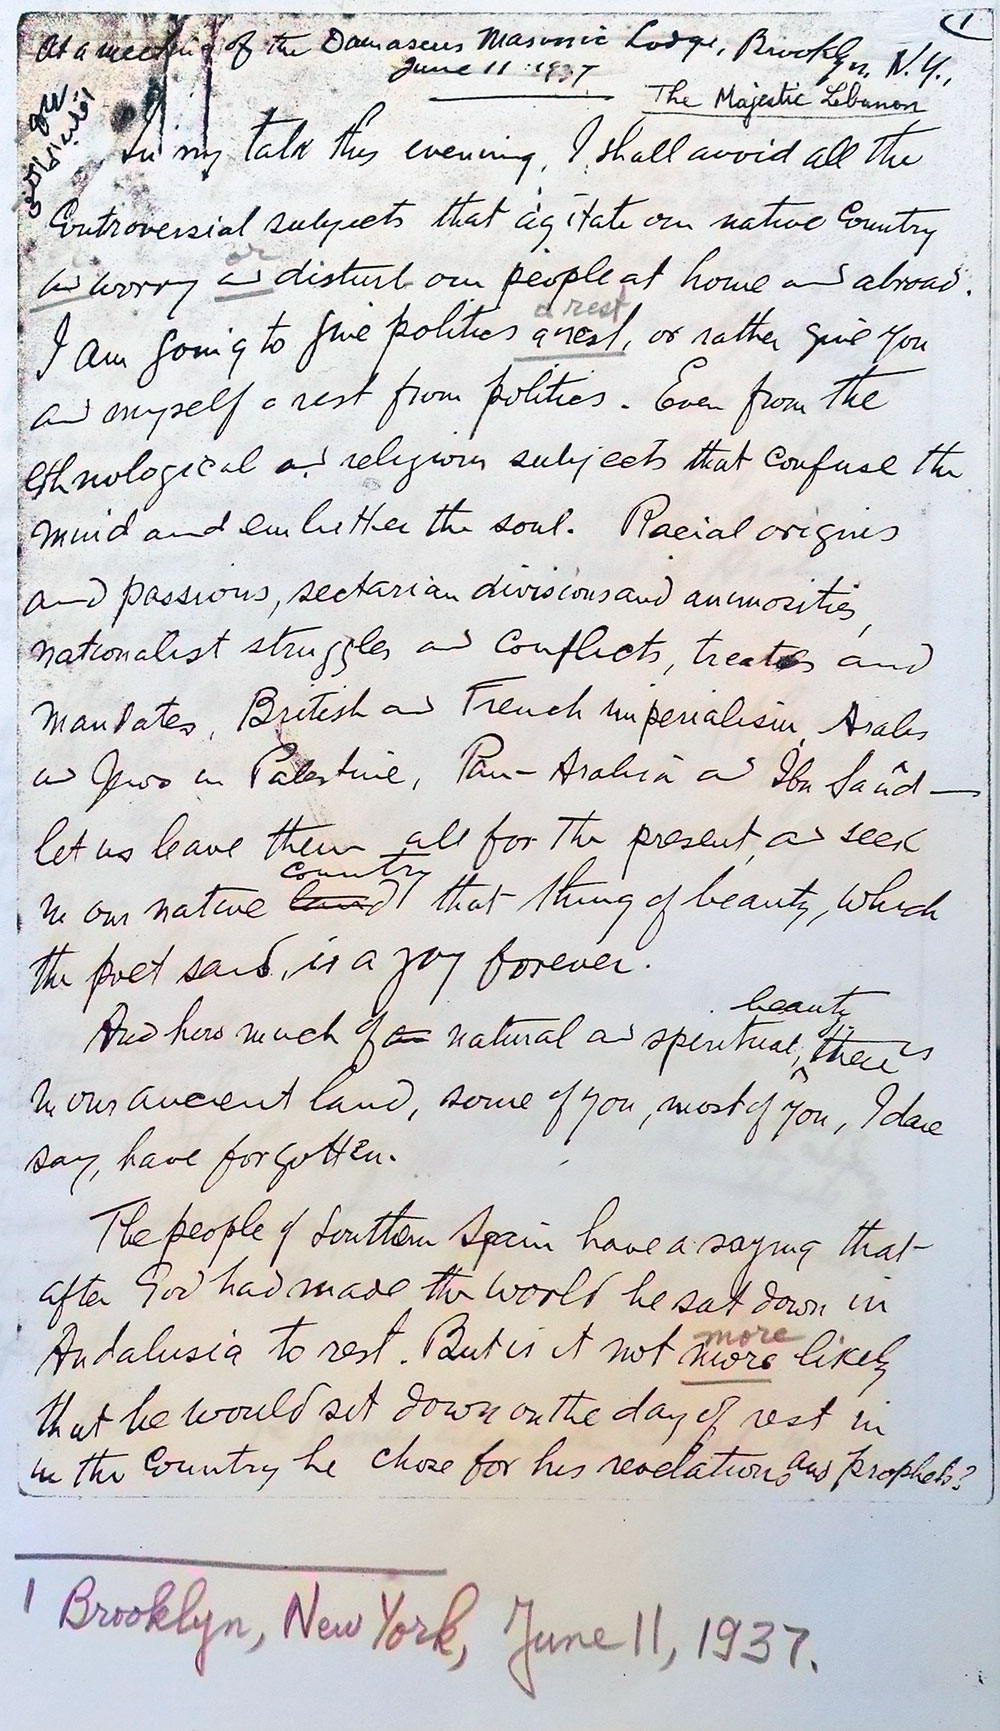 (1
At a meeting of the Damascus Masonic Lodge, Brooklyn, N.Y.,
June 11 1937
The Majestic Lebanon
In my talk this evening, I shall avoid all the
Controversial subjects that agitate our native Country
and worry and disturb our people at home and abroad.
or
I am going to give politics a rest, or rather give you
a rest
and myself a rest from politics. Even from the
ethnological and religious subjects that confuse the
mind and embitter the soul. Racial origins
and passions, sectarian divisions and animosities,
nationalist struggles and conflicts, treaties and
mandates, British and French imperialism, Arabs
and Jews in Palestine, Pan-Arabia and Ibn Saûd —
let us leave them all for the present, and seek
country
in our native land that thing of beauty, which
the poet said, is a joy forever.
beauty
And how much of natural and spiritual, there is
in our ancient land, some of you, most of you, I dare
say, have forgotten.
The people of Southern Spain have a saying that
after God had made the world he sat down in
Andalusia to rest. But is it not more likely
more
that he would sit down on the day of rest in
in the Country he chose for his revelations and prophets?
1 Brooklyn, New York, June 11, 1937.